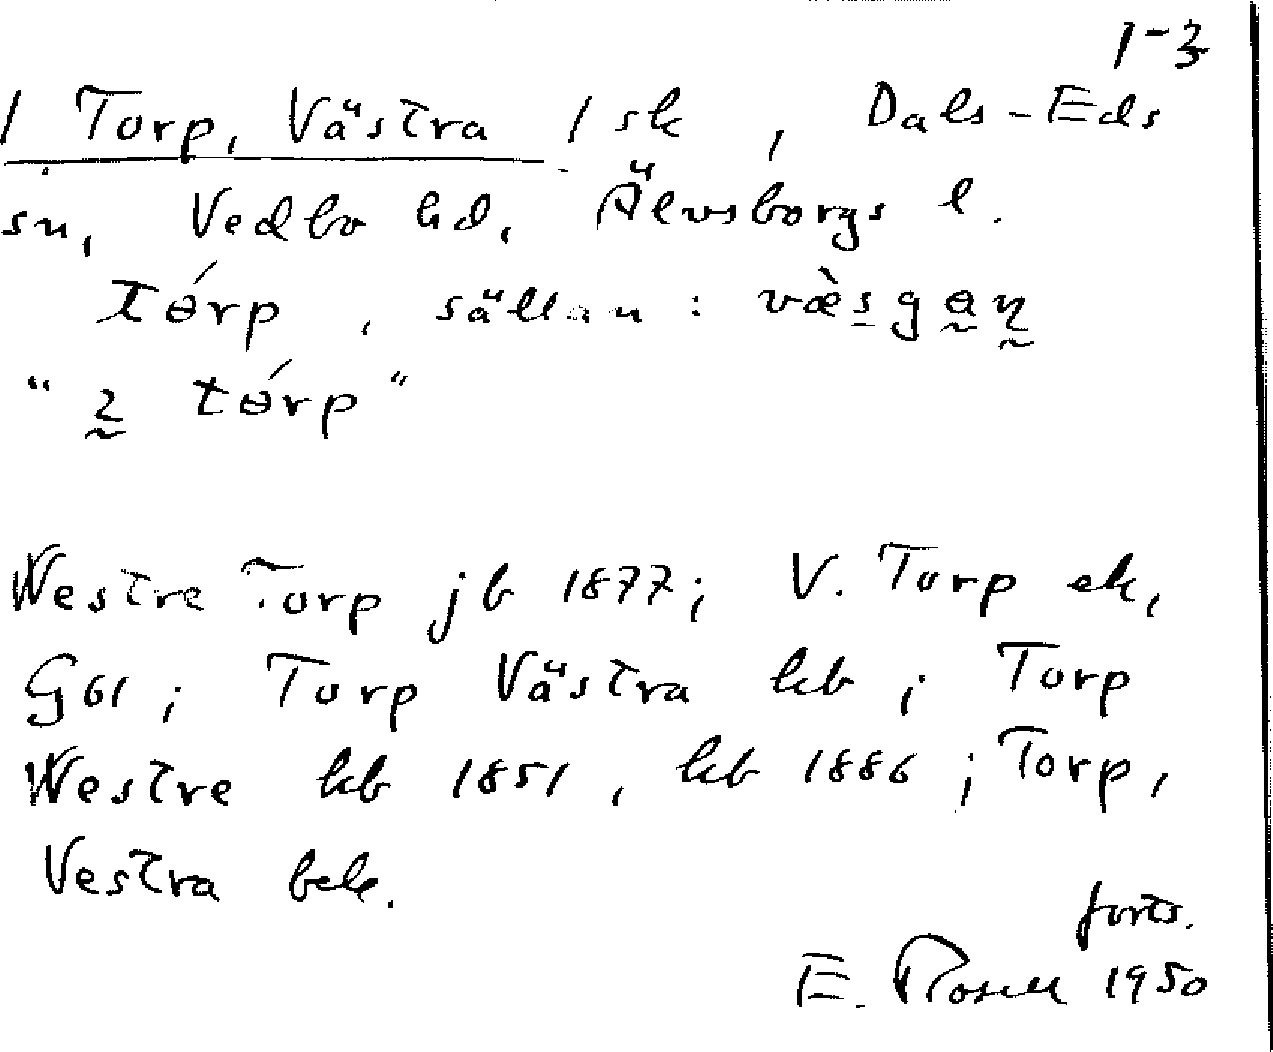 1-3
/ Torp, Västra / sk, Dals-Eds
sn, Vedbo hd, Älvsborgs l.
tǿrp, sällan: væ̀sgaŋ
"2 tǿrp"
Westre Torp jb 1877; V. Torp ek,
G61; Torp Västra kb; Torp
Westre kb 1851, kb 1886; Torp,
Vestra bek.
forts.
E. Rosell 1950